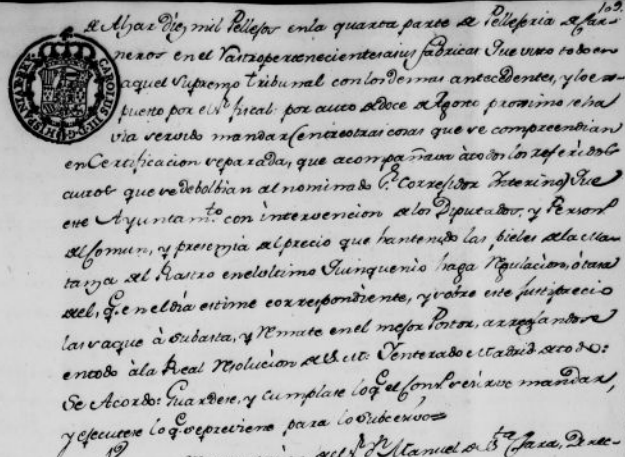 109.
de Aljar Diez mil Pellejos en la quarta parte de Pelleferia de Car-
neros en el Rastro pertenecientes a sus fabricas Que visto todo en
aquel Supremo tribunal con los demas antecedentes, y lo ex-
puesto por el Sr. fiscal: por auto de doce de Agosto proximo se ha
via servido mandar (entre otras cosas que se compreendian
en Certificacion separada, que acompañava à todos los referidos
autos que se debolbian al nominado Sr. Corregidor Interino) Que
este Ayuntamto. con intervencion de los Diputados, y Person.
del Comun, y presencia del precio que han tenido las pieles de la Ma-
tanza del Rastro en el ultimo Quinquenio haga regulacion, ò tasa
del, q.e en el dia estime correspondiente, y sobre este Justiprecio
las saque à subasta, y remate en el mejor Postor, arreglandose
en todo à la Real resolucion de S. M. Y enterado Madrid de todo:
Se Acordo: Guardese, y cumplase lo q.e el Cons.º se sirve mandar,
y ejecutese lo q.e se previene para lo subcesivo=
Manuel de Sta. Clara, Direc-
CAROLUS III D G HISPANIAR REX